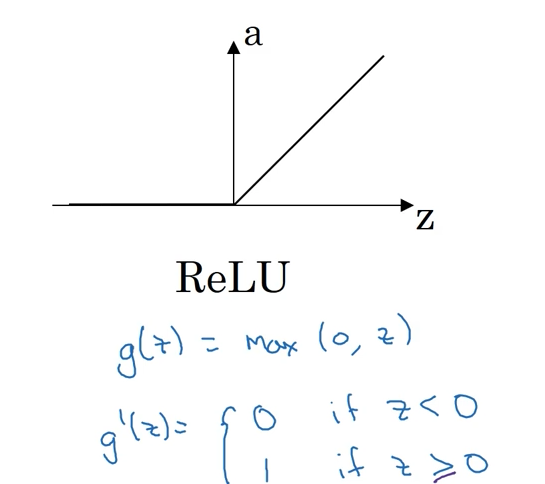 a
z
ReLU
g(z) = max (0, z)
g'(z) = { 0 if z < 0
1 if z ≥ 0